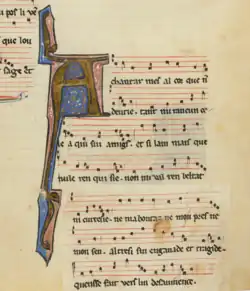 pos li ve
que lou
sage et
A
chantar mes al cor que ri
deurie. tant mi rancun et
le a qui sui amigs. et si lam mais que
nule ren qui sie. non mi val ren beltat
ni curtesie. ne ma bontaz ne mon pres ne
mon sen. altresi sui enganade et tragide.
queusse fait vers lui desavinence.